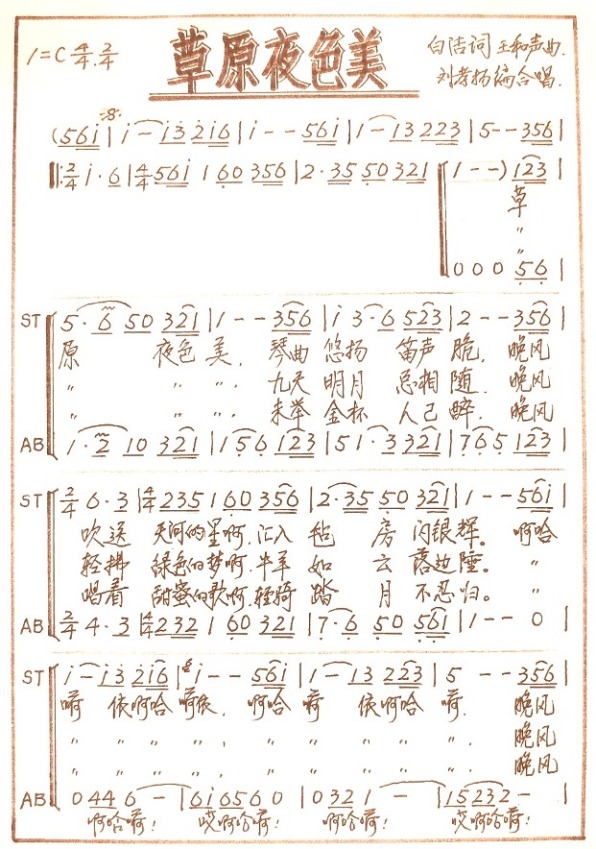 草原夜色美
1=C 4/4 2/4
白洁词 王和声曲.
刘孝扬编合唱.
(56i | i — i3 2i6 | i - - 56i | 1 — 13 223 | 5 - - 356 |
2/4 i· 6 | 4/4 56i 1 60 356 | 2· 35 50 321 | 1 - - ) 123
草
"
"
0 0 0 56 |
ST 5· 6 50 321 | 1 - - 356 | i 3· 6 523 | 2 - - 356 |
原 夜色 美, 琴曲 悠扬 笛声 脆, 晚风
" " " " , 九天 明月 总相 随, 晚风
" " " " , 未举 金杯 人已 醉, 晚风
AB 1· 2 10 321 | 156 123 | 51· 3 321 | 765 123 |
ST 2/4 6· 3 | 4/4 235 1 60 356 | 2· 35 50 321 | 1 - - 56i |
吹送 天河的星啊, 汇入 毡 房 闪银辉。 啊哈
轻拂 绿色的梦啊, 牛羊 如 云 落边陲。 "
唱着 甜蜜的歌啊, 轻骑 踏 月 不忍归。 "
AB 2/4 4· 3 | 4/4 232 1 60 321 | 7· 6 50 561 | 1 - - 0 |
ST i — i3 2i6 | i - - 56i | 1 — 13 223 | 5 - - 356 |
嗬 依啊哈 嗬依, 啊哈 嗬 依啊哈 嗬, 晚风
" " " " " " " " " 晚风
" " " " " " " " " 晚风
AB 0 44 6 — | 6i 656 0 | 0 32 1 — | 15 232 - |
啊哈嗬! 哎啊哈嗬! 啊哈嗬! 哎啊哈嗬!